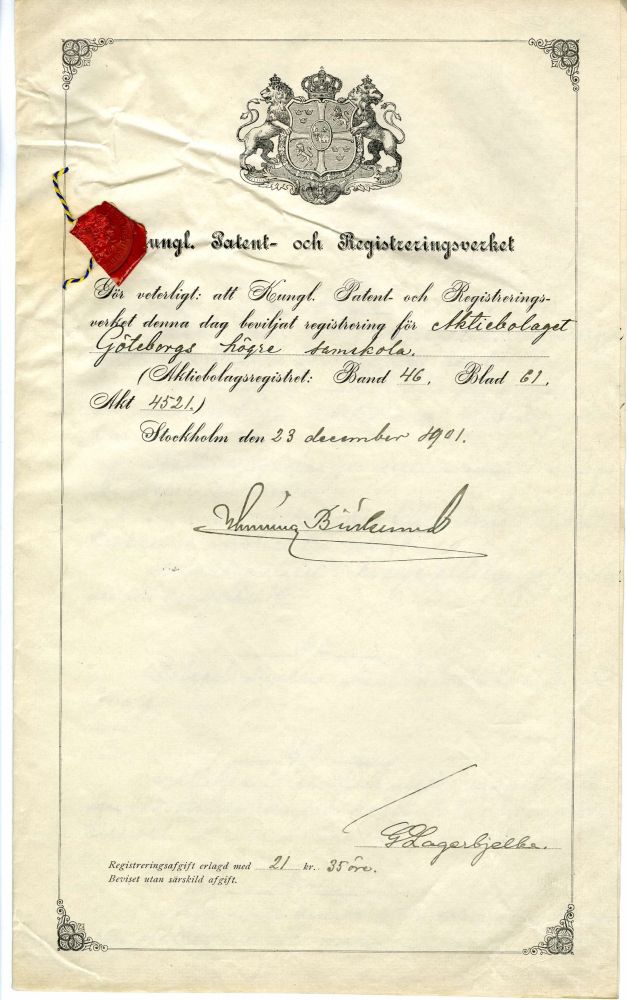 Kungl. Patent- och Registreringsverket
Gör veterligt: att Kungl. Patent- och Registrerings-
verket denna dag beviljat registrering för Aktiebolaget
Göteborgs högre samskola.
(Aktiebolagsregistret: Band 46, Blad 61,
Akt 4521.)
Stockholm den 23 december 1901.
Henning
G Lagerbjelke.
Registreringsafgift erlagd med 21 kr. 35 öre.
Beviset utan särskild afgift.